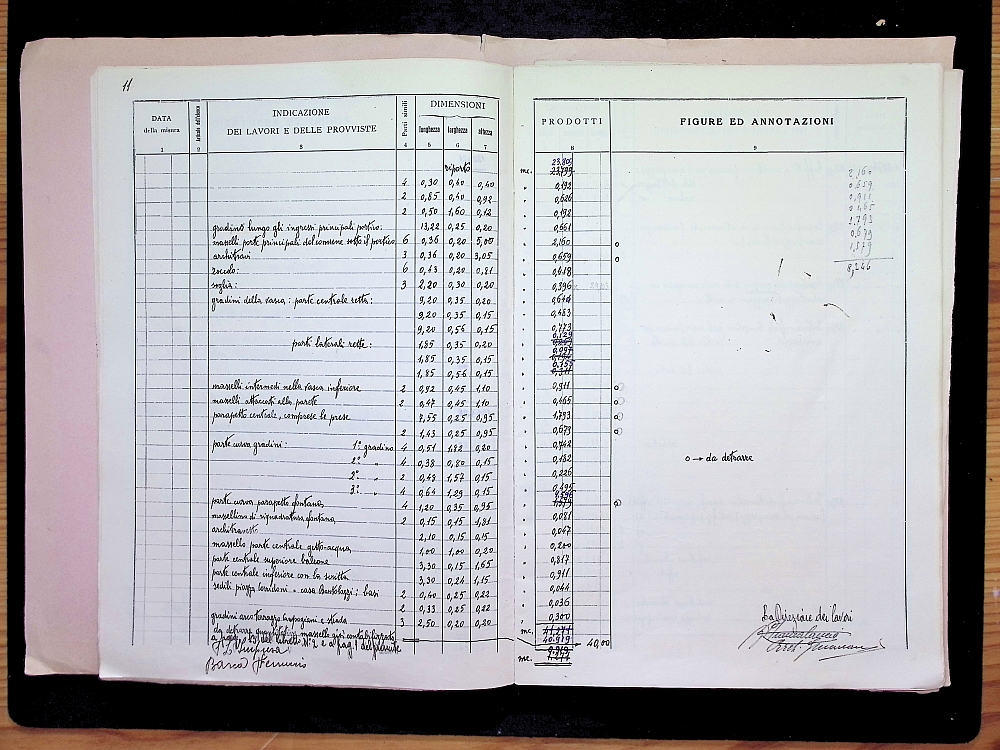 11
DATA della misura
INDICAZIONE DEI LAVORI E DELLE PROVVISTE
Parti simili
DIMENSIONI
lunghezza larghezza altezza
PRODOTTI
FIGURE ED ANNOTAZIONI
1 2 3 4 5 6 7 8 9
riporto mc. 23,809
4 0,30 0,40 0,40 " 0,192
2 0,85 0,40 0,92 " 0,626
2 0,50 1,60 0,12 " 0,192
gradino lungo gli ingressi principali portico: 13,22 0,25 0,20 " 0,661
masselli porte principali del comune sotto il portico 6 0,36 0,20 5,00 " 2,160 o
architravi 3 0,36 0,20 3,05 " 0,659 o
zoccolo: 6 0,43 0,20 0,81 " 0,418
soglia: 3 2,20 0,30 0,20 " 0,396
gradini della vasca: parte centrale retta: 9,20 0,35 0,20 " 0,644
9,20 0,35 0,15 " 0,483
9,20 0,56 0,15 " 0,773
parti laterali rette: 1,85 0,35 0,20 " 0,129
1,85 0,35 0,15 " 0,097
1,85 0,56 0,15 "
masselli intermedi nella vasca inferiore 2 0,92 0,45 1,10 " 0,911 o
masselli attaccati alla parete 2 0,47 0,45 1,10 " 0,465 o
parapetto centrale, comprese le prese 7,55 0,25 0,95 " 1,793 o
2 1,43 0,25 0,95 " 0,679 o
parte curva gradini: 1° gradino 4 0,51 1,82 0,20 " 0,742
2° " 4 0,38 0,80 0,15 " 0,182
2° " 2 0,48 1,57 0,15 " 0,226
3° " 4 0,64 1,29 0,15 " 0,495
parte curva parapetto fontana 4 1,20 0,35 0,95 " o
massellino di riquadratura fontana 2 0,15 0,15 1,81 " 0,081
architravetto 2,10 0,15 0,15 " 0,047
massello parte centrale getto-acqua 1,00 1,00 0,20 " 0,200
parte centrale superiore balcone 3,30 0,15 1,65 " 0,817
parte centrale inferiore con la scritta 3,30 0,24 1,15 " 0,911
sedili piazza Corridoni e casa Bortolazzi: basi 2 0,40 0,25 0,22 " 0,044
2 0,33 0,25 0,22 " 0,036
3 2,50 0,20 0,20 " 0,300
da detrarre masselli già contabilizzati
a pag. 13 del libretto N° 2 e a pag. 1 del presente
mc.
40.919 → 40,00
mc.
L'Impresa
2,160
0,659
0,911
0,465
1,793
0,679
1,579
8,246
o → da detrarre
La Direzione dei lavori